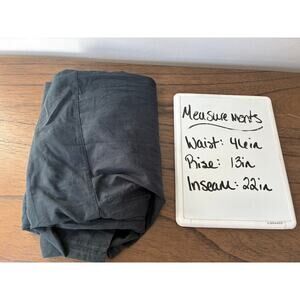 Measurements
Waist: 46in
Rise: 13in
Inseam: 22in